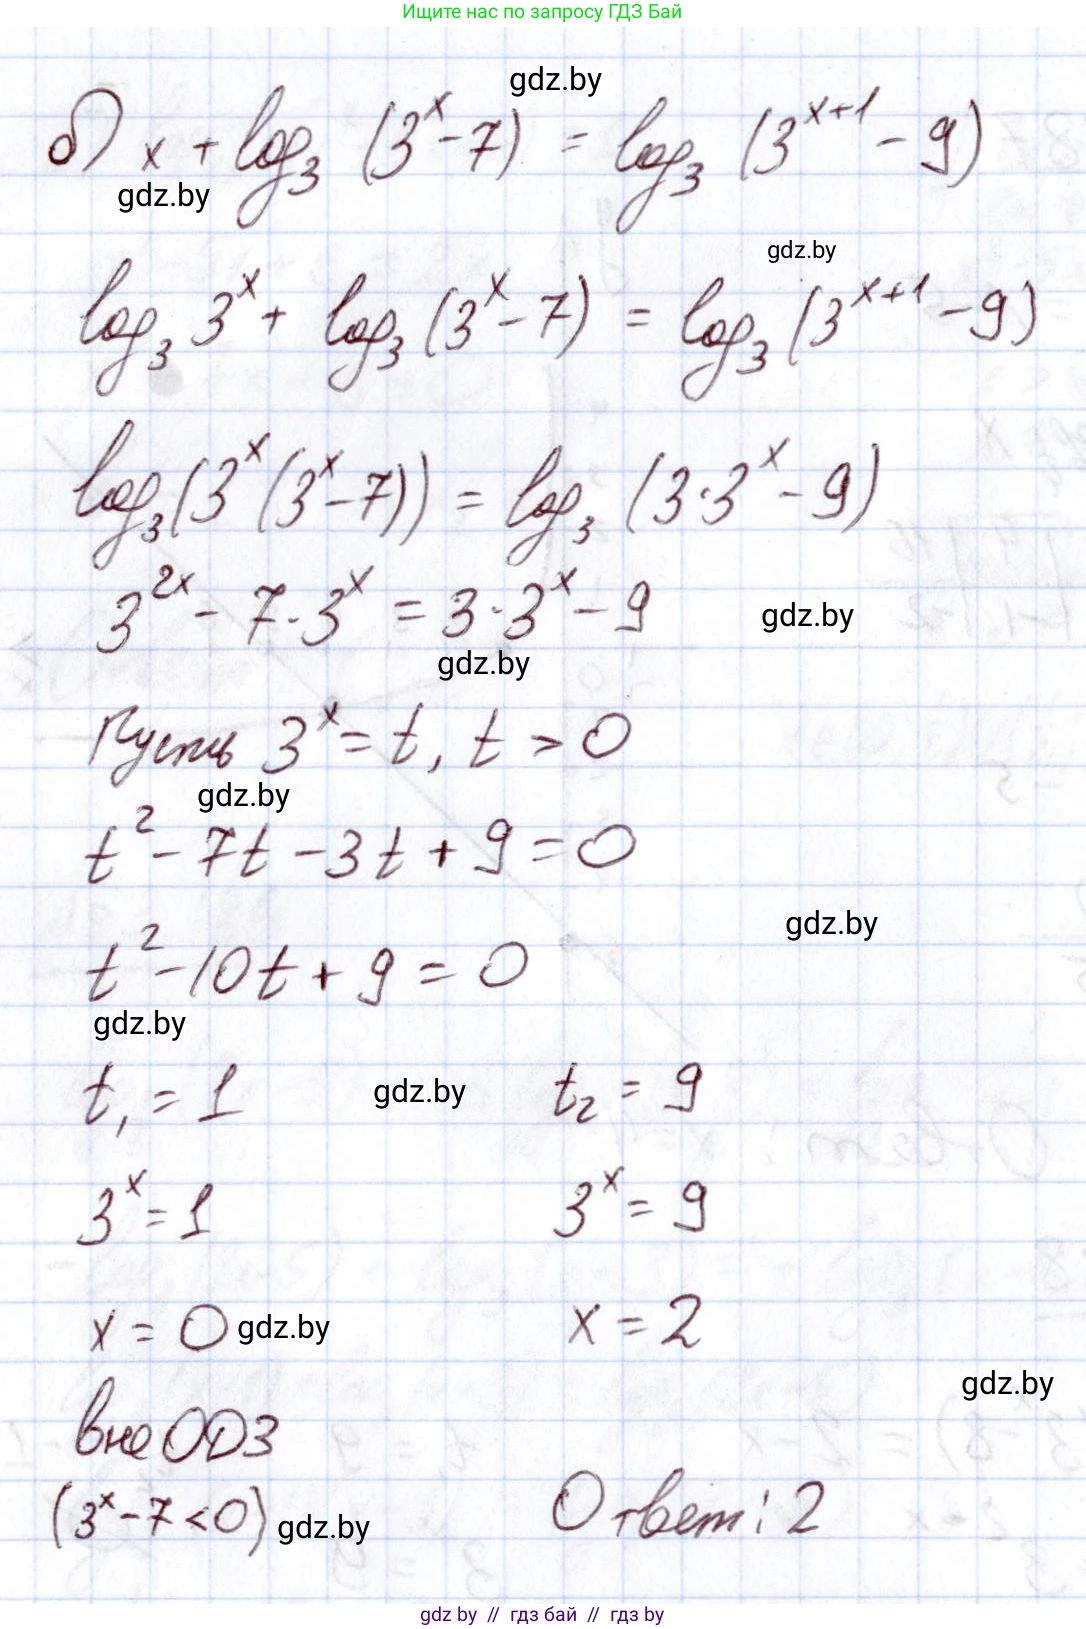 Ищите нас по запросу ГДЗ Бай
gdz.by
б) x + log₃ (3ˣ - 7) = log₃ (3ˣ⁺¹ - 9)
gdz.by
gdz.by
log₃ 3ˣ + log₃ (3ˣ - 7) = log₃ (3ˣ⁺¹ - 9)
log₃ (3ˣ (3ˣ - 7)) = log₃ (3·3ˣ - 9)
3²ˣ - 7·3ˣ = 3·3ˣ - 9
gdz.by
gdz.by
Пусть 3ˣ = t, t > 0
gdz.by
t² - 7t - 3t + 9 = 0
gdz.by
t² - 10t + 9 = 0
gdz.by
t₁ = 1 gdz.by t₂ = 9
3ˣ = 1 3ˣ = 9
x = 0 gdz.by x = 2
gdz.by
вне ОДЗ
(3ˣ - 7 < 0) gdz.by Ответ: 2
gdz by // гдз бай // гдз by